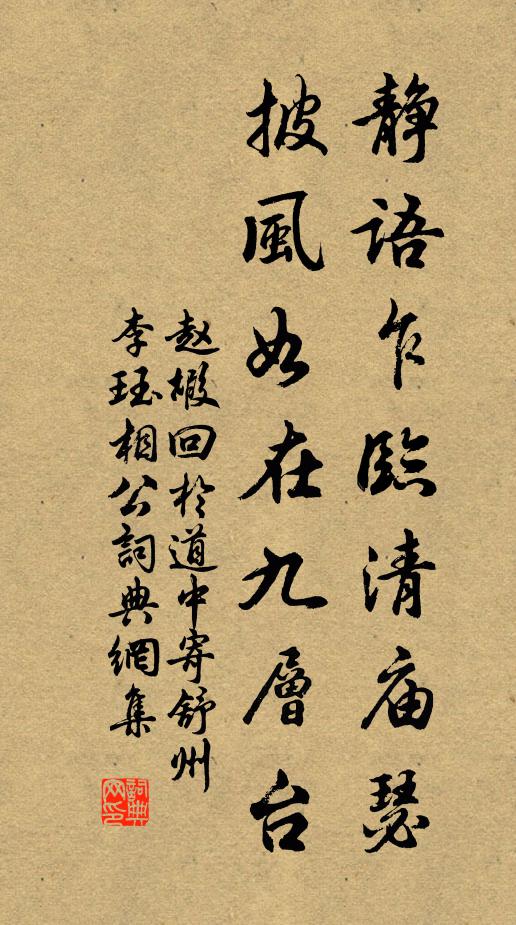 静语乍臨清庙瑟
披風如在九層台
赵嘏回於道中寄舒州
李珏相公詞典網集
詞典网印